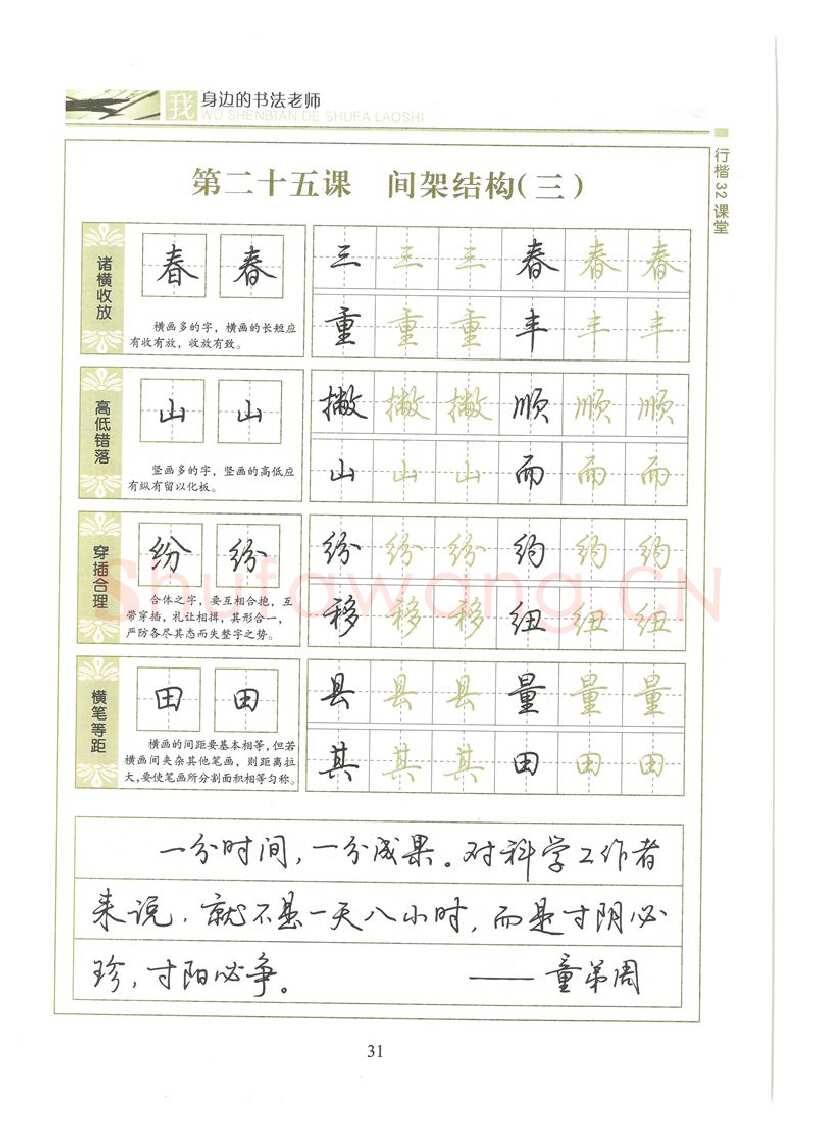 我 身边的书法老师
WO SHENBIAN DE SHUFA LAOSHI
行楷32课堂
第二十五课 间架结构(三)
诸横收放
春 春
横画多的字,横画的长短应
有收有放,收放有致。
三 三 三 春 春 春
重 重 重 丰 丰 丰
高低错落
山 山
竖画多的字,竖画的高低应
有纵有留以化板。
撇 撇 撇 顺 顺 顺
山 山 山 而 而 而
穿插合理
纷 纷
合体之字,要互相合抱,互
带穿插,礼让相揖,其形合一,
严防各尽其态而失整字之势。
纷 纷 纷 约 约 约
移 移 移 纽 纽 纽
横笔等距
田 田
横画的间距要基本相等,但若
横画间夹杂其他笔画,则距离拉
大,要使笔画所分割面积相等匀称。
县 县 县 量 量 量
其 其 其 田 田 田
shufawang.CN
一分时间,一分成果。对科学工作者
来说,就不是一天八小时,而是寸阴必
珍,寸阳必争。 ——童第周
31